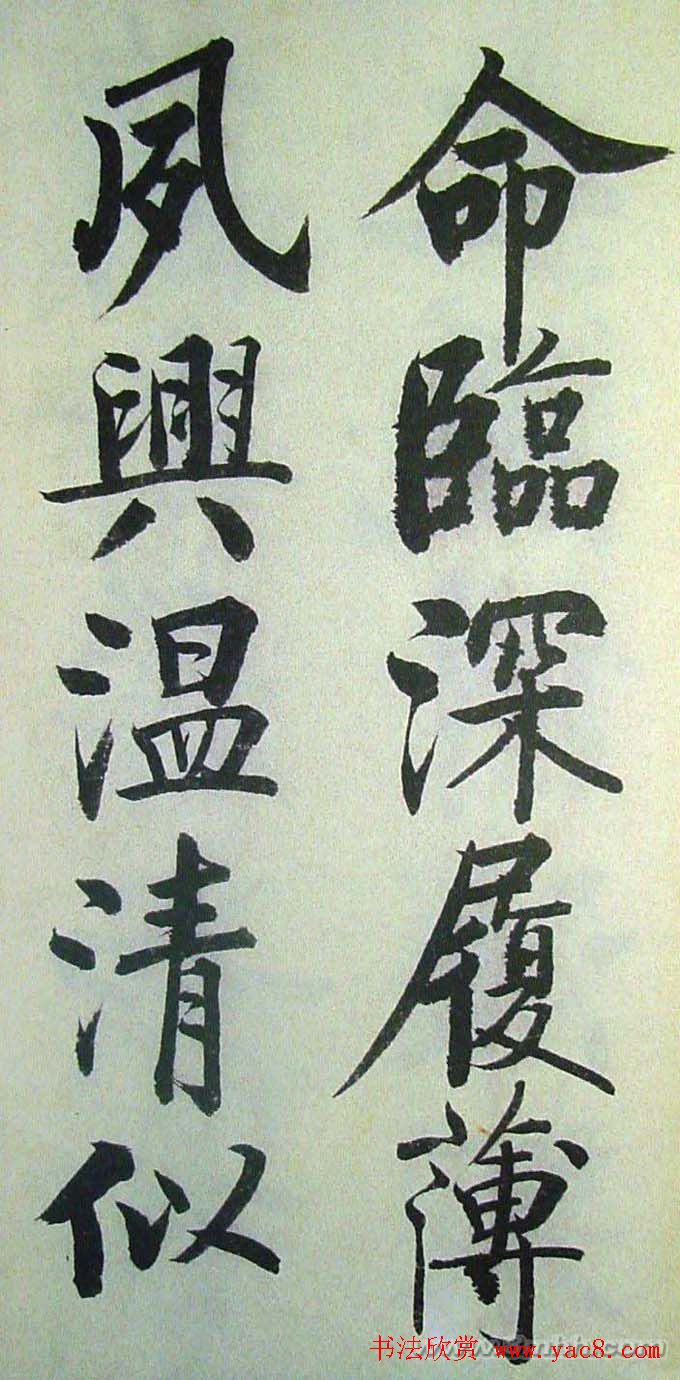 命臨深履薄
夙興温清似
书法欣赏 www.yac8.com